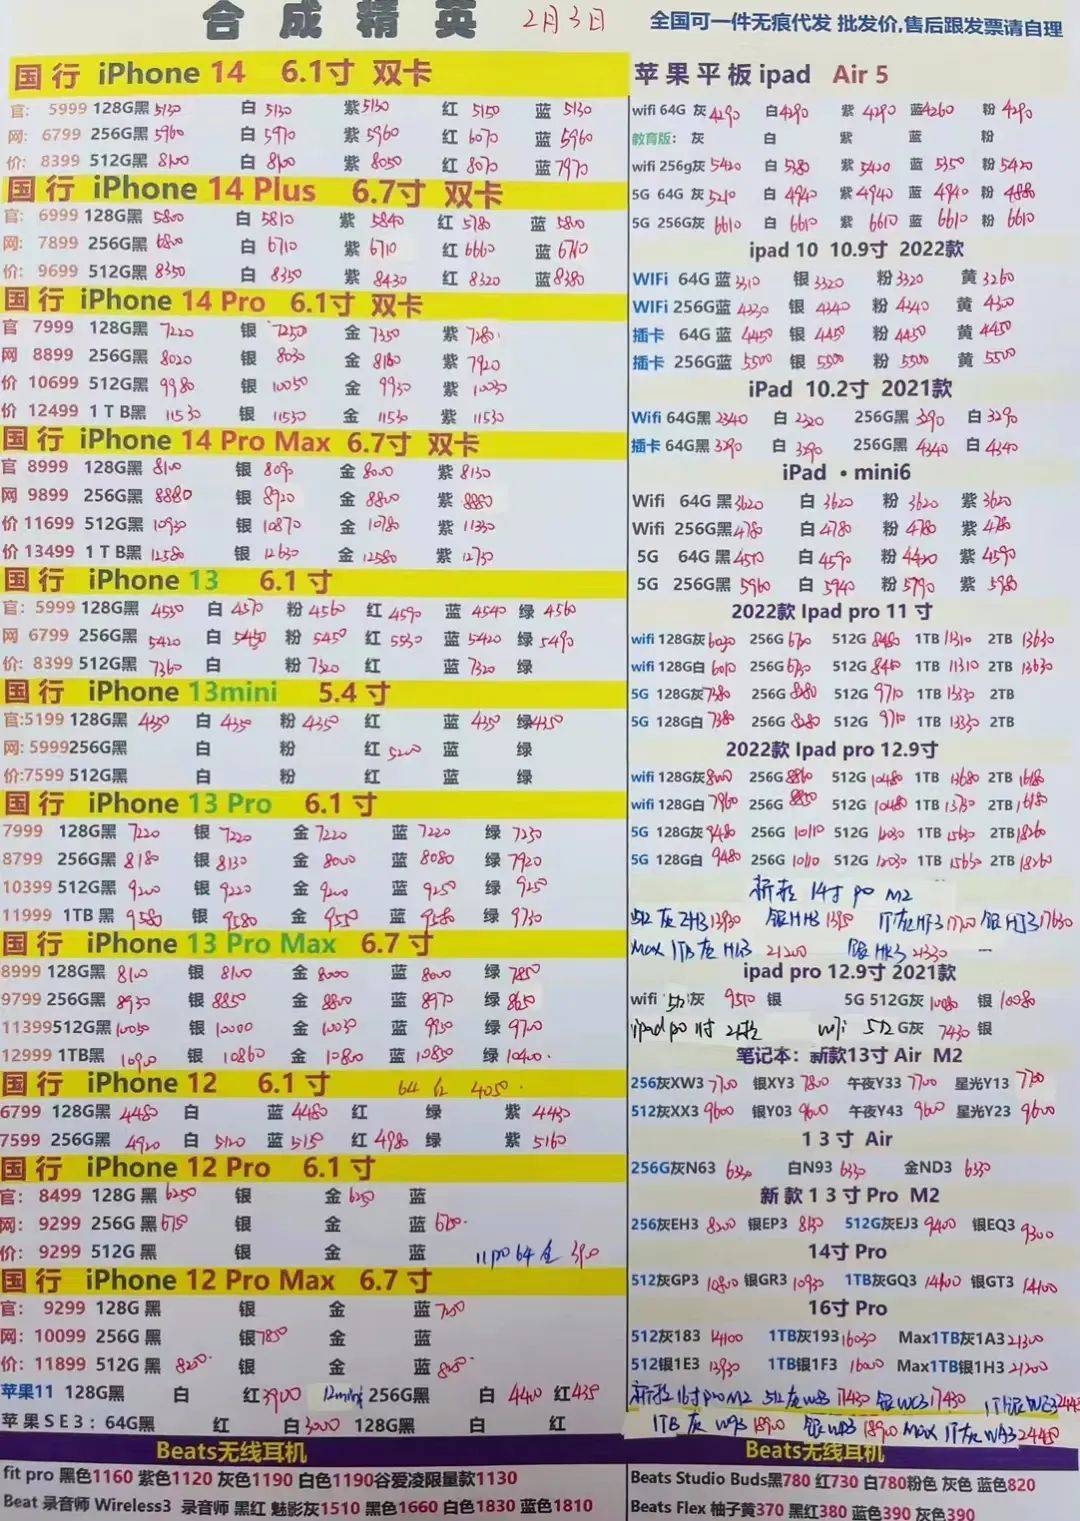 合成精英 2月3日
全国可一件无痕代发 批发价,售后跟发票请自理
国行 iPhone 14 6.1寸 双卡
官: 5999 128G黑 5130 白 5130 紫 5130 红 5150 蓝 5130
网: 6799 256G黑 5960 白 5970 紫 5960 红 6070 蓝 5960
价: 8399 512G黑 8100 白 8100 紫 8050 红 8070 蓝 7970
国行 iPhone 14 Plus 6.7寸 双卡
官: 6999 128G黑 5800 白 5810 紫 5840 红 5780 蓝 5800
网: 7899 256G黑 6800 白 6710 紫 6710 红 6660 蓝 6710
价: 9699 512G黑 8350 白 8350 紫 8430 红 8320 蓝 8380
国行 iPhone 14 Pro 6.1寸 双卡
官 7999 128G黑 7220 银 7250 金 7350 紫 7280
网 8899 256G黑 8020 银 8030 金 8180 紫 7920
价 10699 512G黑 9980 银 10050 金 9930 紫 10030
价 12499 1TB黑 11530 银 11530 金 11530 紫 11530
国行 iPhone 14 Pro Max 6.7寸 双卡
官 8999 128G黑 8100 银 8090 金 8000 紫 8130
网 9899 256G黑 8880 银 8920 金 8800 紫 8880
价 11699 512G黑 10930 银 10870 金 10780 紫 11330
价 13499 1TB黑 12580 银 12630 金 12580 紫 12730
国行 iPhone 13 6.1寸
官: 5999 128G黑 4530 白 4570 粉 4560 红 4590 蓝 4540 绿 4560
网 6799 256G黑 5420 白 5450 粉 5450 红 5530 蓝 5420 绿 5490
价: 8399 512G黑 7360 白 粉 7320 红 蓝 7320 绿
国行 iPhone 13mini 5.4寸
官:5199 128G黑 4350 白 4330 粉 4350 红 蓝 4350 绿 4350
网: 5999256G黑 白 粉 红 5200 蓝 绿
价:7599 512G黑 白 粉 红 蓝 绿
国行 iPhone 13 Pro 6.1寸
7999 128G黑 7220 银 7220 金 7220 蓝 7220 绿 7230
8799 256G黑 8180 银 8130 金 8000 蓝 8080 绿 7920
10399 512G黑 9200 银 9220 金 9200 蓝 9250 绿 9250
11999 1TB黑 9580 银 9580 金 9550 蓝 9580 绿 9730
国行 iPhone 13 Pro Max 6.7寸
8999 128G黑 8100 银 8100 金 8000 蓝 8000 绿 7850
9799 256G黑 8930 银 8850 金 8800 蓝 8970 绿 8650
11399512G黑 10030 银 10000 金 10030 蓝 9950 绿 9700
12999 1TB黑 10900 银 10860 金 10800 蓝 10850 绿 10400
国行 iPhone 12 6.1寸 64 红 4050
6799 128G黑 4480 白 蓝 4480 红 绿 紫 4480
7599 256G黑 4920 白 5120 蓝 5150 红 4980 绿 紫 5160
国行 iPhone 12 Pro 6.1寸
官: 8499 128G黑 6250 银 金 6250 蓝
网: 9299 256G黑 6750 银 金 蓝 6700
价: 9299 512G黑 银 金 蓝 11pro 64 金
国行 iPhone 12 Pro Max 6.7寸
官: 9299 128G黑 银 金 蓝
网: 10099 256G黑 银 7850 金 蓝
价: 11899 512G黑 8200 银 金 蓝
苹果11 128G黑 白 红 3900 12mini 256G黑 白 4400 红
苹果SE3: 64G黑 红 白 3000 128G黑 白 红
Beats无线耳机
fit pro 黑色1160 紫色1120 灰色1190 白色1190谷爱凌限量款1130
Beat 录音师 Wireless3 录音师 黑红 魅影灰1510 黑色1660 白色1830 蓝色1810
苹果平板ipad Air 5
wifi 64G 灰 4290 白 4290 紫 4290 蓝 4260 粉 4290
教育版: 灰 白 紫 蓝 粉
wifi 256g灰 5420 白 5380 紫 5420 蓝 5350 粉 5420
5G 64G 灰 5210 白 4940 紫 4940 蓝 4940 粉 4880
5G 256G灰 6610 白 6610 紫 6610 蓝 6610 粉 6610
ipad 10 10.9寸 2022款
WIFi 64G 蓝 3310 银 3320 粉 3320 黄 3260
WIFi 256G蓝 4330 银 4340 粉 4340 黄 4300
插卡 64G蓝 4450 银 4450 粉 4450 黄 4450
插卡 256G蓝 5500 银 5500 粉 5500 黄 5500
iPad 10.2寸 2021款
Wifi 64G黑 2340 白 2320 256G黑 3290 白 3290
插卡 64G黑 3290 白 3290 256G黑 4340 白 4340
iPad ·mini6
Wifi 64G 黑 3620 白 3620 粉 3620 紫 3620
Wifi 256G黑 4780 白 4780 粉 4780 紫 4780
5G 64G 黑 4570 白 4590 粉 4400 紫 4590
5G 256G黑 5960 白 5940 粉 5790 紫 5980
2022款 Ipad pro 11寸
wifi 128G灰 6030 256G 6730 512G 8480 1TB 11310 2TB 13630
wifi 128G白 6010 256G 6730 512G 8450 1TB 11310 2TB 13630
5G 128G灰 7380 256G 8280 512G 9710 1TB 13330 2TB
5G 128G白 7380 256G 8280 512G 9710 1TB 13330 2TB
2022款 Ipad pro 12.9寸
wifi 128G灰 8000 256G 8860 512G 10480 1TB 13680 2TB 16180
wifi 128G白 7960 256G 8850 512G 10480 1TB 13730 2TB 16180
5G 128G灰 9480 256G 10110 512G 12030 1TB 15630 2TB 18260
5G 128G白 9480 256G 10110 512G 12030 1TB 15630 2TB 18260
新款 14寸 pro M2
512 灰 ZH3 13930 银HH3 1T灰HF3 17700 银HJ3 17630
Max 1TB 灰 H13 21200 银 HK3 21330
ipad pro 12.9寸 2021款
wifi 512灰 9550 银 5G 512G灰 10080 银 10080
ipad pro 11寸 21款 wifi 512G灰 7430 银
笔记本: 新款13寸 Air M2
256灰XW3 7700 银XY3 7800 午夜Y33 7700 星光Y13 7700
512灰XX3 9600 银Y03 9600 午夜Y43 9600 星光Y23 9600
13寸 Air
256G灰N63 6330 白N93 6330 金ND3 6330
新款13寸Pro M2
256灰EH3 8200 银EP3 8150 512G灰EJ3 9400 银EQ3 9300
14寸 Pro
512灰GP3 10800 银GR3 10930 1TB灰GQ3 14100 银GT3 14100
16寸 Pro
512灰183 14100 1TB灰193 16030 Max1TB灰1A3 21300
512银1E3 13930 1TB银1F3 16000 Max1TB银1H3 21200
新款16寸proM2 512灰W83 17430 银WC3 17430 1T银WE3
1TB 灰 W93 18900 银WD3 18900 Max 1T灰 WA3 24450
Beats无线耳机
Beats Studio Buds黑780 红730 白780粉色 灰色 蓝色820
Beats Flex 柚子黄370 黑红380 蓝色390 灰色390